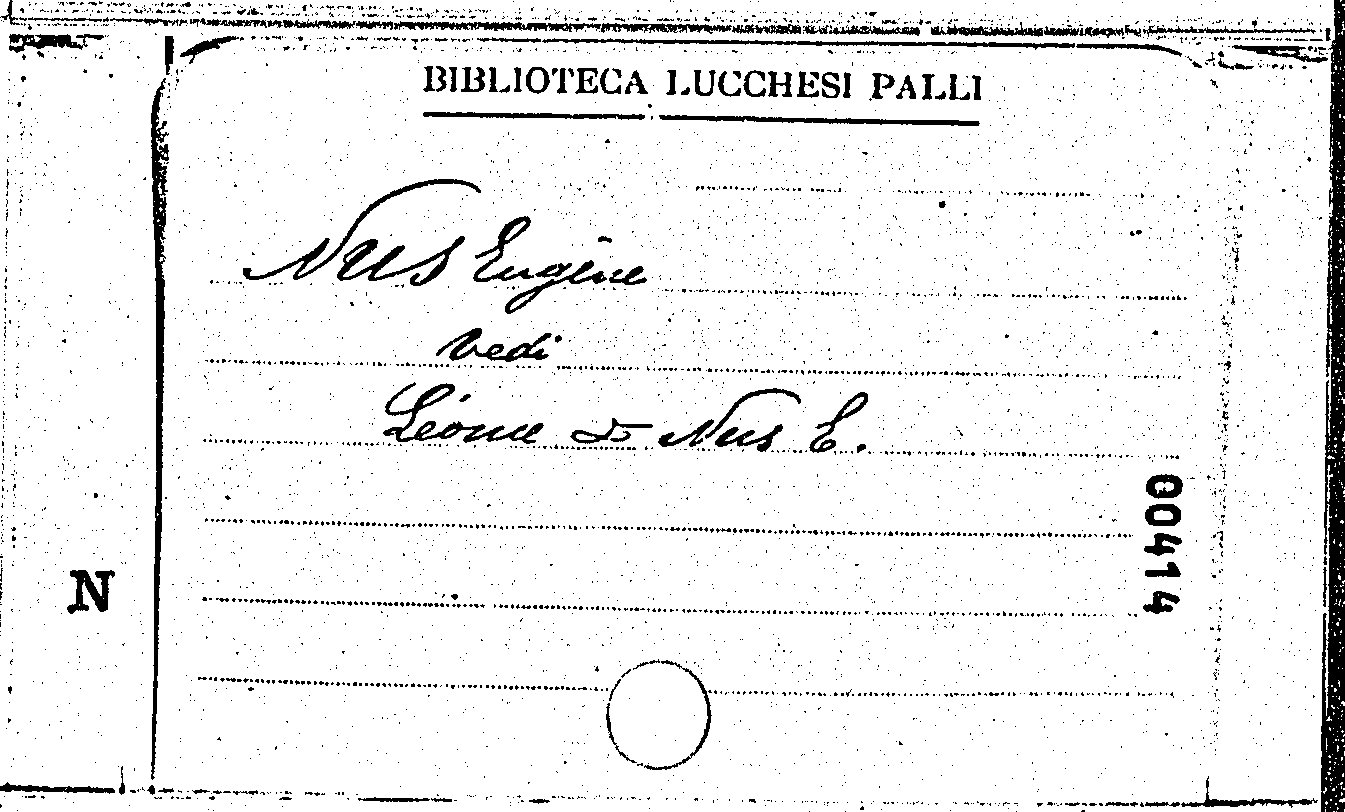 BIBLIOTECA LUCCHESI PALLI
Nus Eugène
vedi
Léonce & Nus E.
00414
N